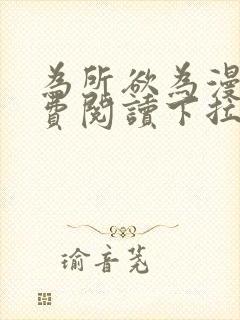 為所欲為漫
費閱讀下拉
瑜音茺